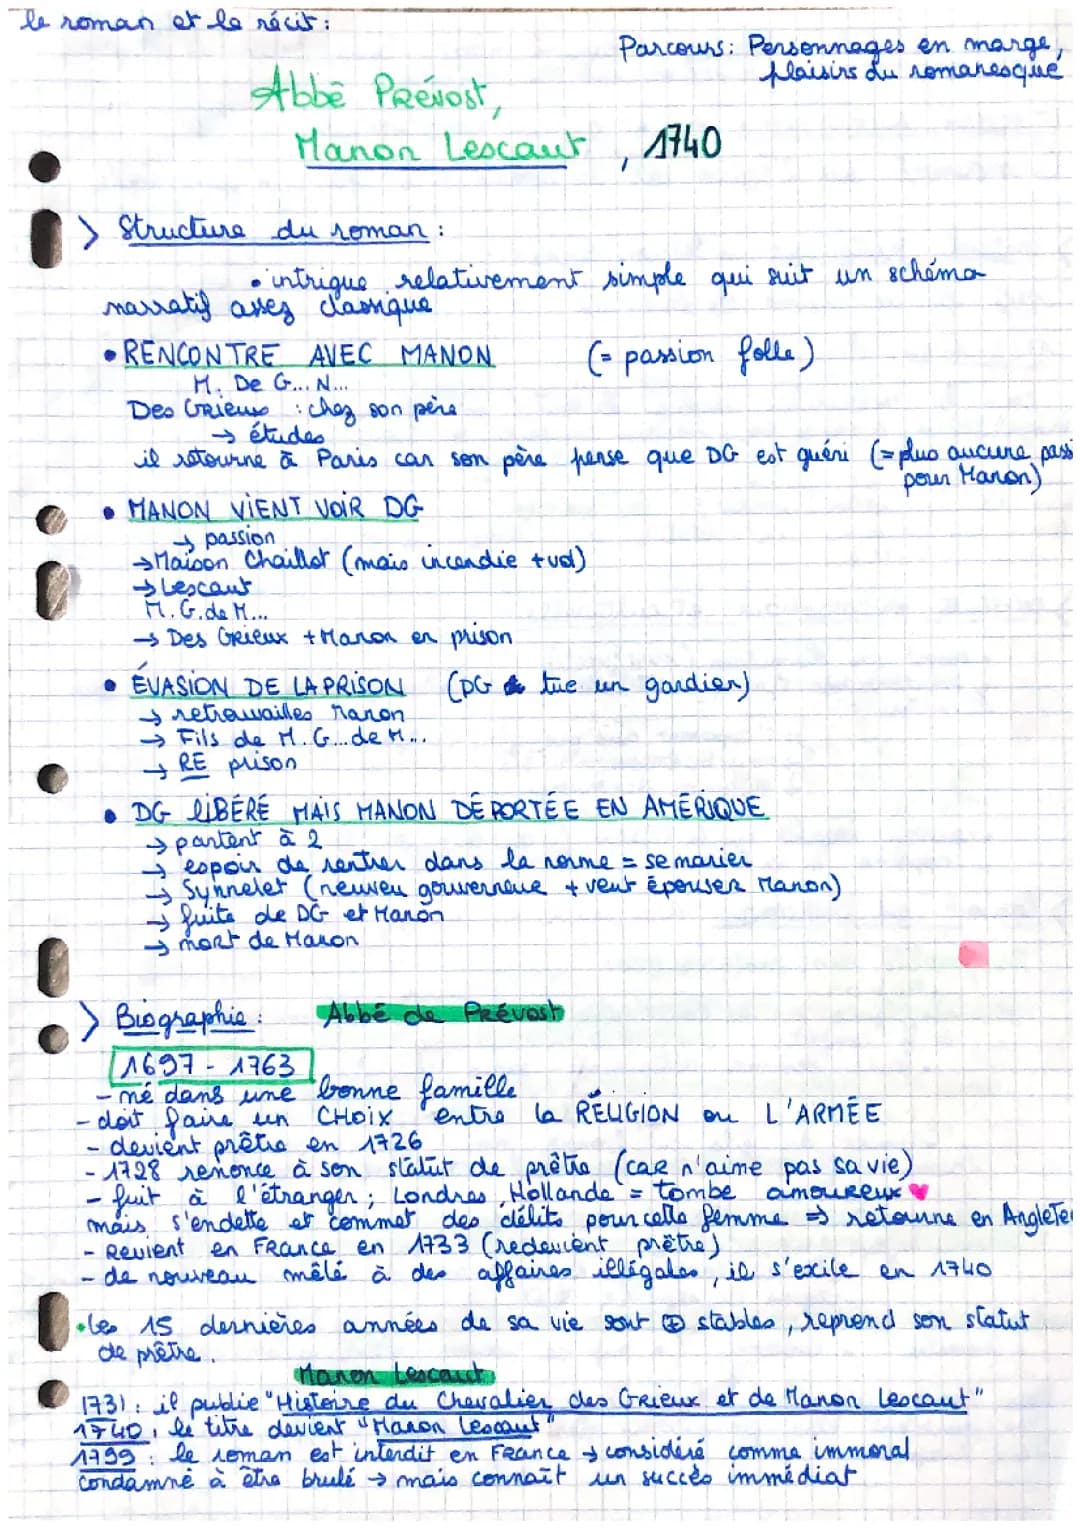 le roman et le récit :
Parcours : Personnages en marge,
plaisirs du romanesque
Abbé Prévost,
Manon Lescaut , 1740
> Structure du roman :
• intrigue relativement simple qui suit un schéma
narratif assez classique
• RENCONTRE AVEC MANON (= passion folle)
M. De G... N...
Des Grieux : chez son père
→ études
il retourne à Paris car son père pense que DG est guéri (= plus aucune pass
pour Manon)
• MANON VIENT VOIR DG
→ passion
→ Maison Chaillot (mais incendie + vol)
→ Lescaut
M. G. de M...
→ Des Grieux + Manon en prison
• ÉVASION DE LA PRISON (DG tue un gardien)
→ retrouvailles Manon
→ Fils de M. G... de M...
→ RE prison
• DG LIBÉRÉ MAIS MANON DÉPORTÉE EN AMÉRIQUE
→ partent à 2
→ espoir de rentrer dans la norme = se marier
→ Synnelet (neuveu gouverneur + veut épouser Manon)
→ fuite de DG et Manon
→ mort de Manon
> Biographie : Abbé de Prévost
1697 - 1763
- né dans une bonne famille
- doit faire un CHOIX entre la RELIGION ou L'ARMÉE
- devient prêtre en 1726
- 1728 renonce à son statut de prêtre (car n'aime pas sa vie)
- fuit à l'étranger ; Londres, Hollande = tombe amoureux ♥
mais s'endette et commet des délits pour cette femme ⇒ retourne en Angleter
- Revient en France en 1733 (redevient prêtre)
- de nouveau mêlé à des affaires illégales, il s'exile en 1740
• les 15 dernières années de sa vie sont ⊕ stables, reprend son statut
de prêtre.
Manon Lescaut
1731 : il publie "Histoire du Chevalier des Grieux et de Manon Lescaut"
1740 : le titre devient "Manon Lescaut"
1799 : le roman est interdit en France → considéré comme immoral
condamné à être brulé → mais connaît un succès immédiat